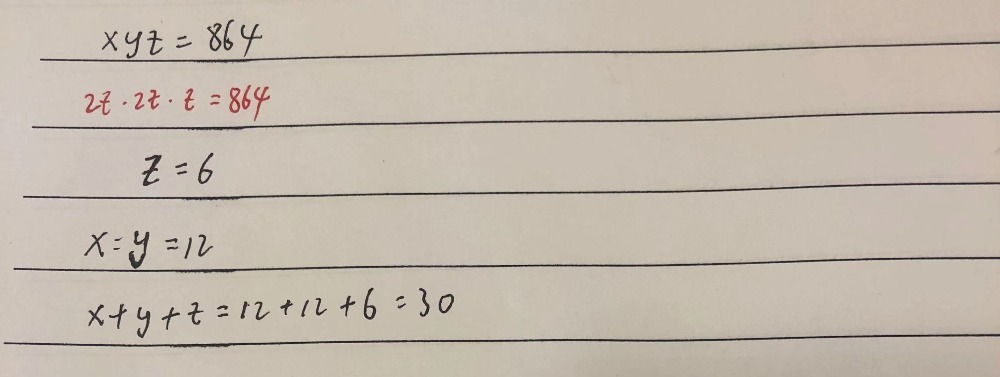 xyz = 864
2z · 2z · z = 864
z = 6
x = y = 12
x + y + z = 12 + 12 + 6 = 30